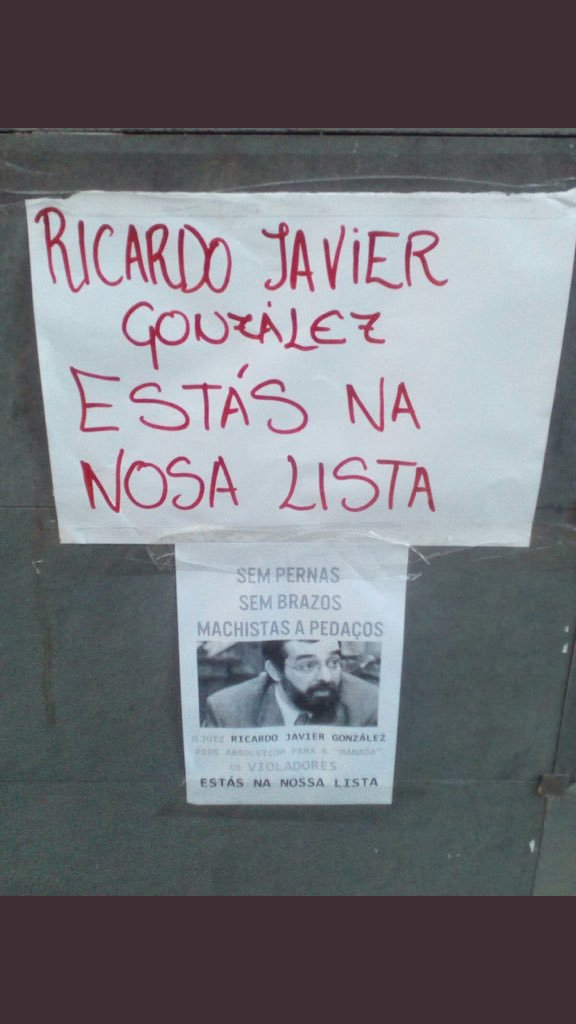 RICARDO JAVIER
GONZÁLEZ
ESTÁS NA
NOSA LISTA
SEM PERNAS
SEM BRAZOS
MACHISTAS A PEDAÇOS
O JUIZ RICARDO JAVIER GONZÁLEZ
PEDE ABSOLVIÇOM PARA A "MANADA"
DE VIOLADORES
ESTÁS NA NOSSA LISTA